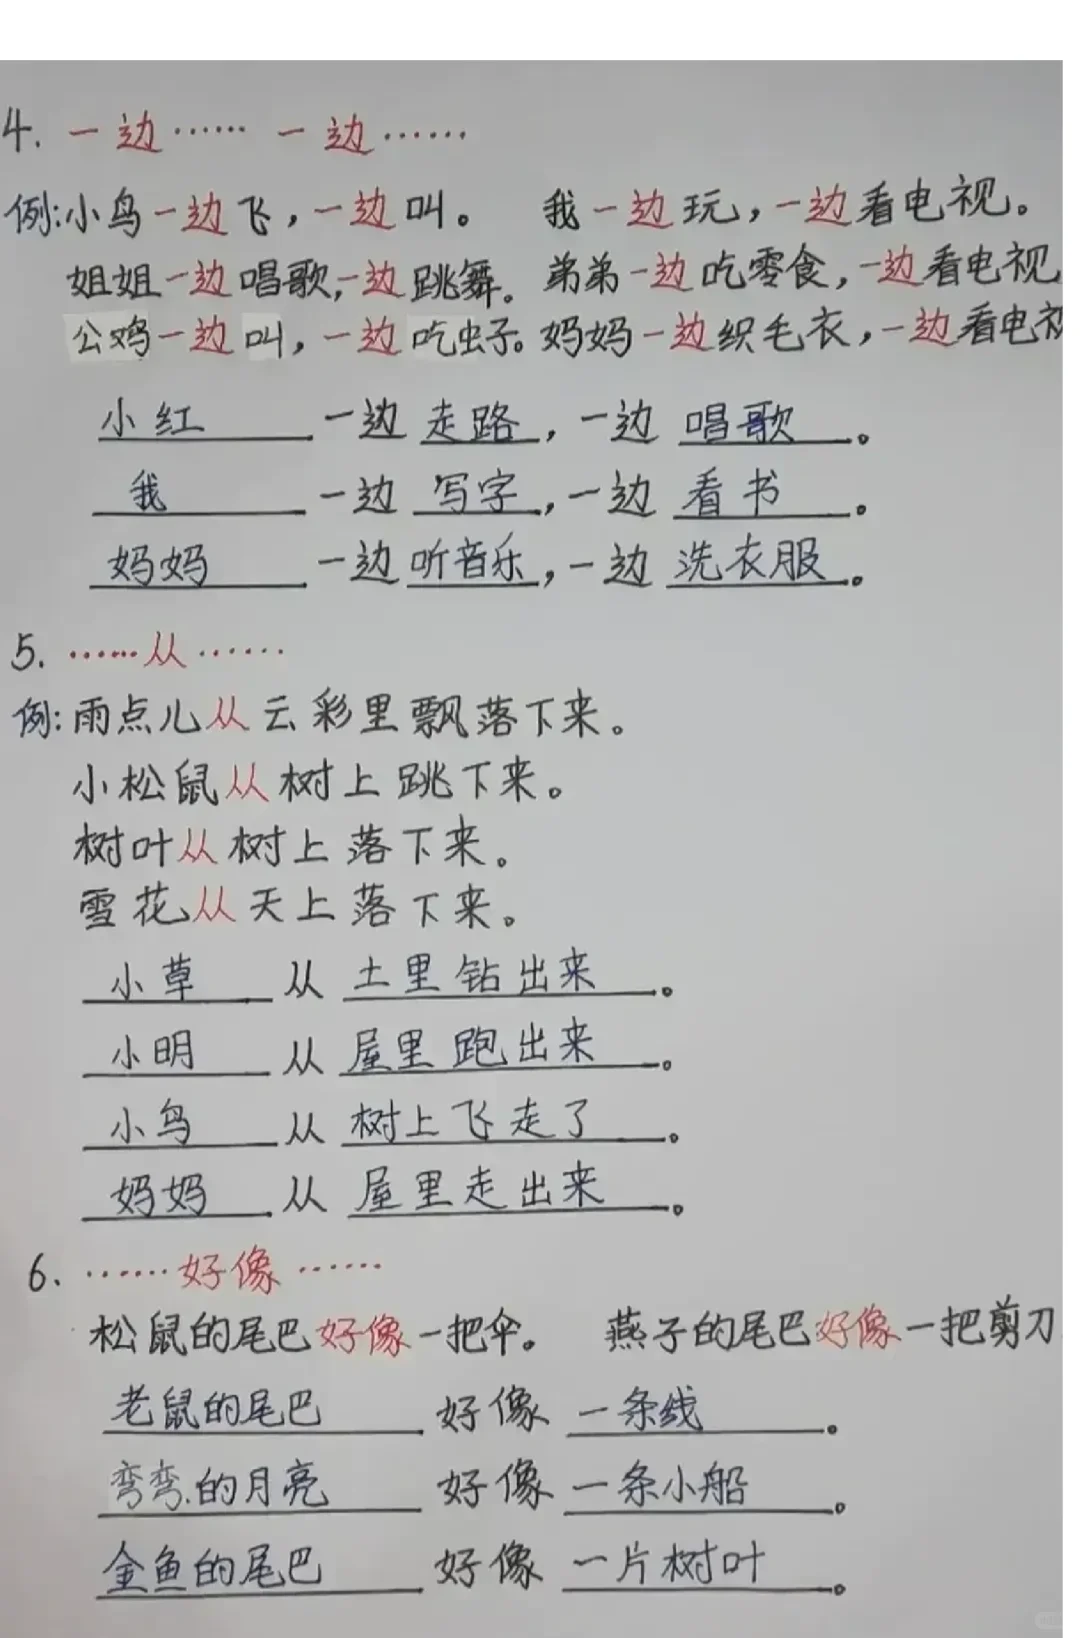 4. 一边…… 一边……
例:小鸟一边飞，一边叫。 我一边玩，一边看电视。
姐姐一边唱歌,一边跳舞。 弟弟一边吃零食，一边看电视
公鸡一边叫，一边吃虫子。 妈妈一边织毛衣，一边看电视
小红 一边 走路，一边 唱歌。
我 一边 写字，一边 看书。
妈妈 一边 听音乐，一边 洗衣服。
5. ……从……
例:雨点儿从云彩里飘落下来。
小松鼠从树上跳下来。
树叶从树上落下来。
雪花从天上落下来。
小草 从 土里钻出来。
小明 从 屋里跑出来。
小鸟 从 树上飞走了。
妈妈 从 屋里走出来。
6. ……好像……
松鼠的尾巴好像一把伞。 燕子的尾巴好像一把剪刀
老鼠的尾巴 好像 一条线。
弯弯的月亮 好像 一条小船。
金鱼的尾巴 好像 一片树叶。